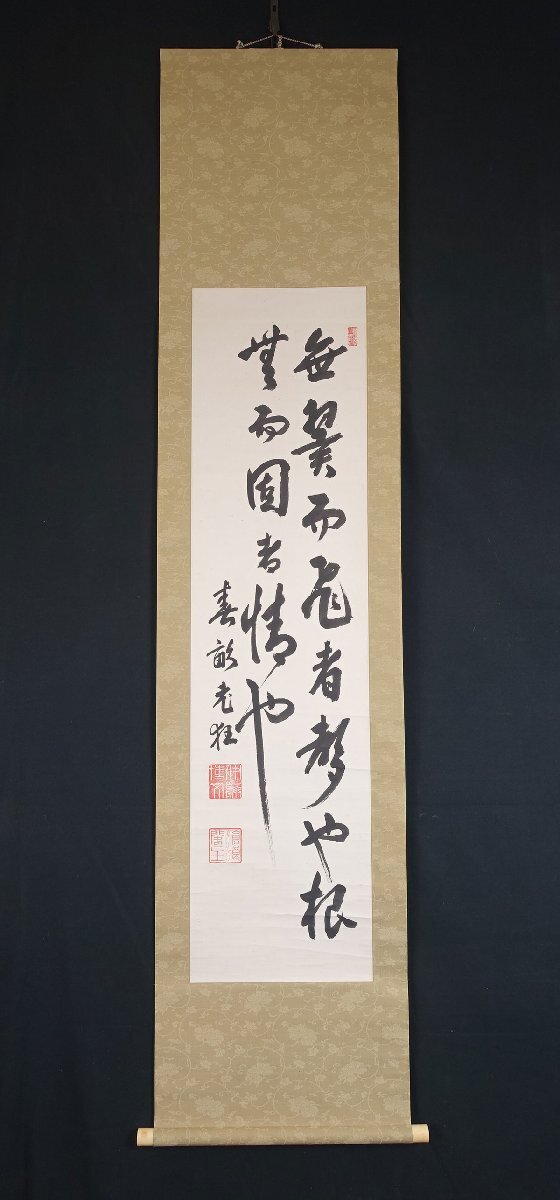 無翼而飛者聲也根
無而固者情也
春畝老狂